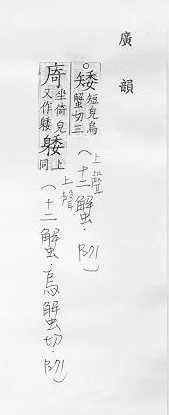 廣韻
○矮短皃烏蟹切三 上聲(十二蟹·P.271)
㾨坐倚皃又作躷躷上同 上聲(十二蟹·烏蟹切·P.271)